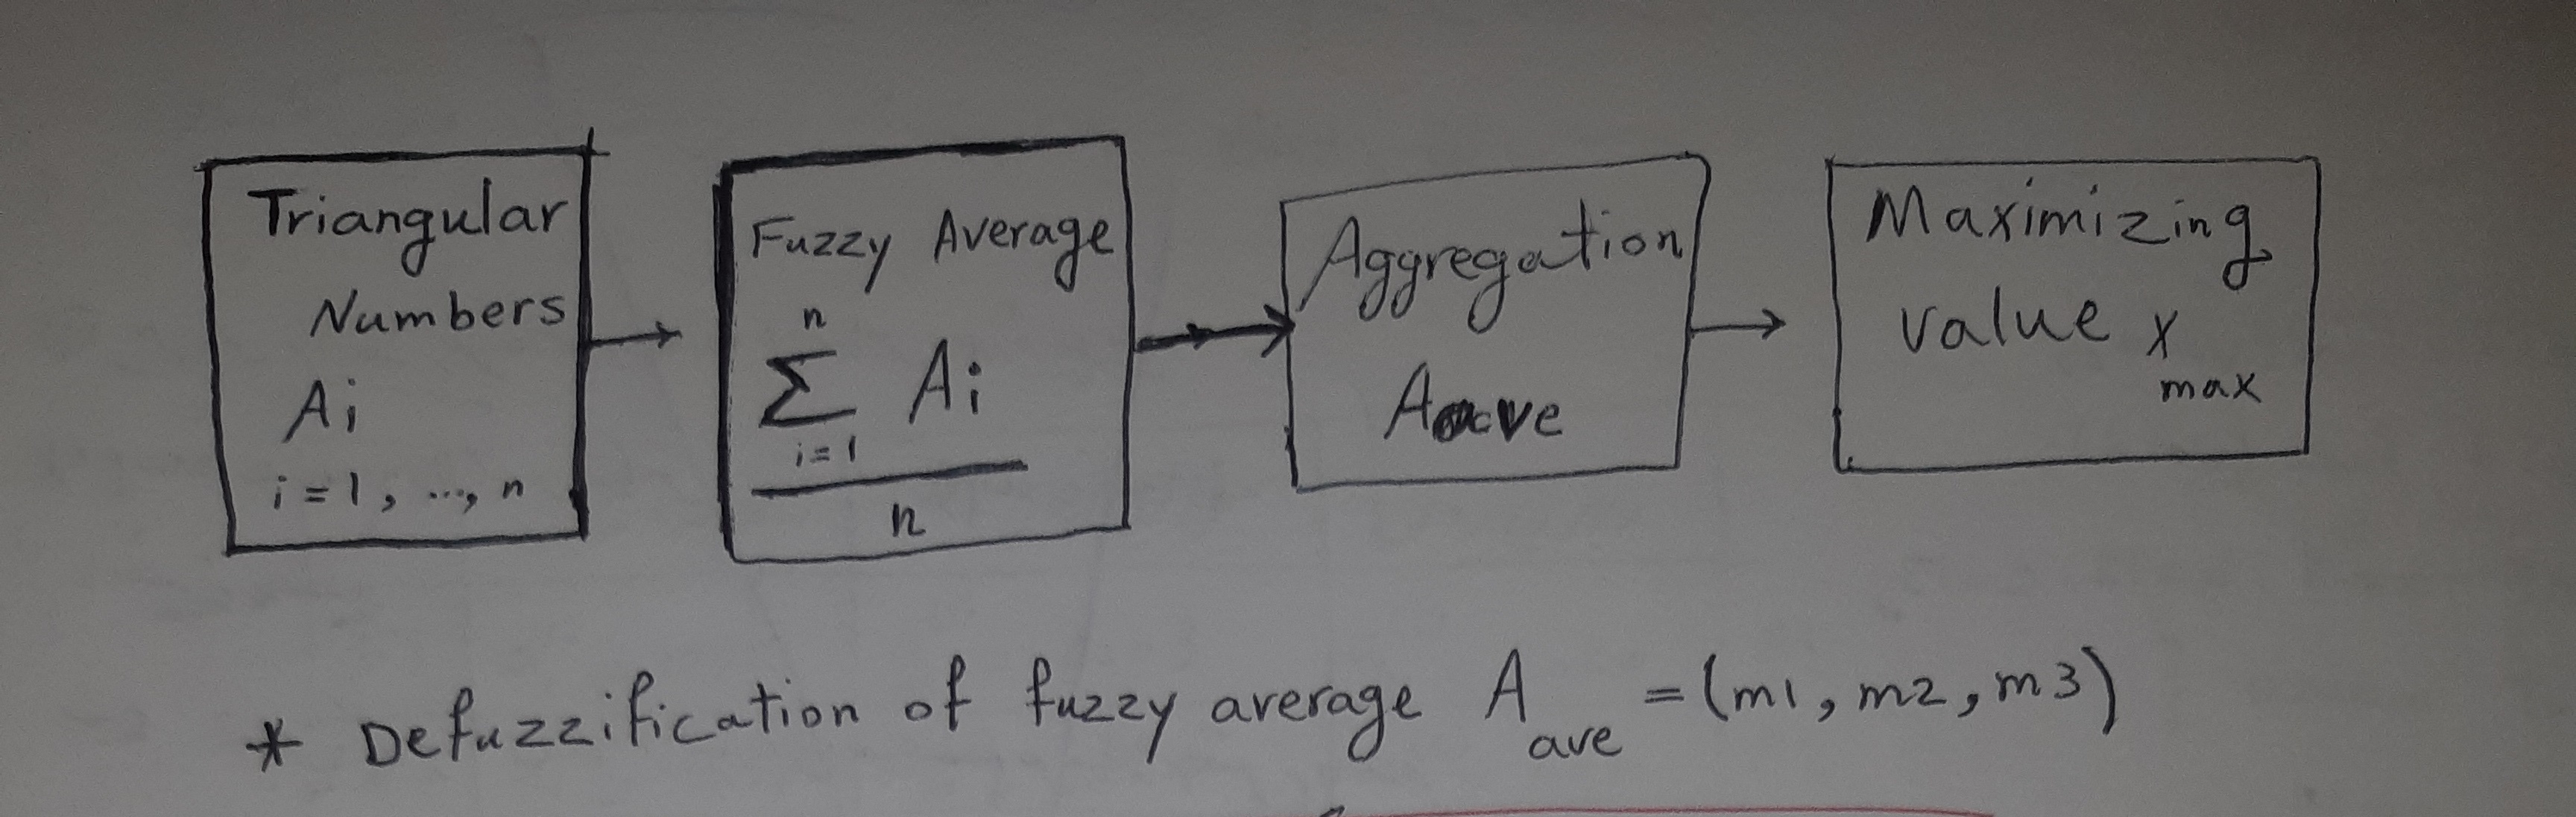 Triangular
Numbers
Ai
i=1, ..., n
Fuzzy Average
n
∑ Ai
i=1
n
Aggregation
Aave
Maximizing
value x
max
* Defuzzification of fuzzy average A = (m1, m2, m3)
ave